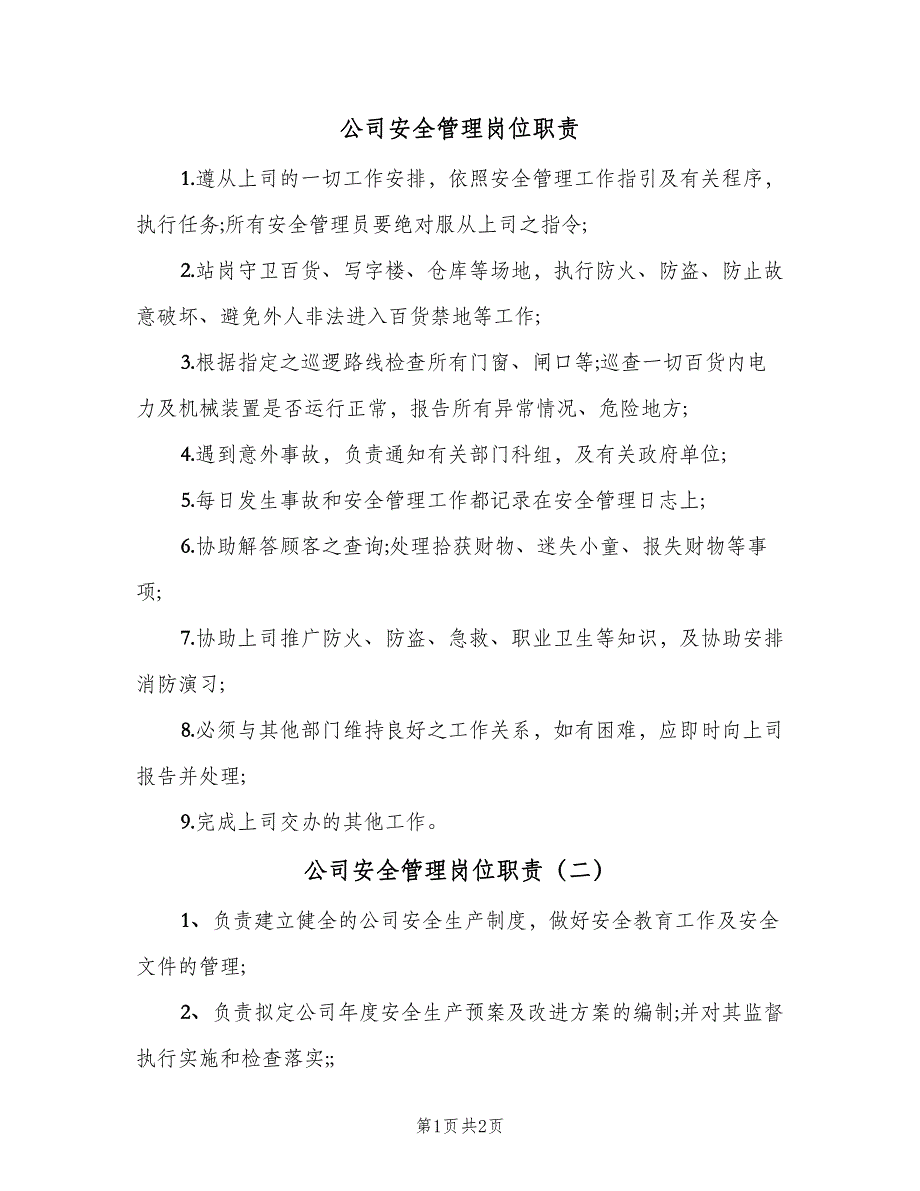 公司安全管理岗位职责
1.遵从上司的一切工作安排，依照安全管理工作指引及有关程序，
执行任务;所有安全管理员要绝对服从上司之指令;
2.站岗守卫百货、写字楼、仓库等场地，执行防火、防盗、防止故
意破坏、避免外人非法进入百货禁地等工作;
3.根据指定之巡逻路线检查所有门窗、闸口等;巡查一切百货内电
力及机械装置是否运行正常，报告所有异常情况、危险地方;
4.遇到意外事故，负责通知有关部门科组，及有关政府单位;
5.每日发生事故和安全管理工作都记录在安全管理日志上;
6.协助解答顾客之查询;处理拾获财物、迷失小童、报失财物等事
项;
7.协助上司推广防火、防盗、急救、职业卫生等知识，及协助安排
消防演习;
8.必须与其他部门维持良好之工作关系，如有困难，应即时向上司
报告并处理;
9.完成上司交办的其他工作。
公司安全管理岗位职责（二）
1、负责建立健全的公司安全生产制度，做好安全教育工作及安全
文件的管理;
2、负责拟定公司年度安全生产预案及改进方案的编制;并对其监督
执行实施和检查落实;;
第1页 共2页